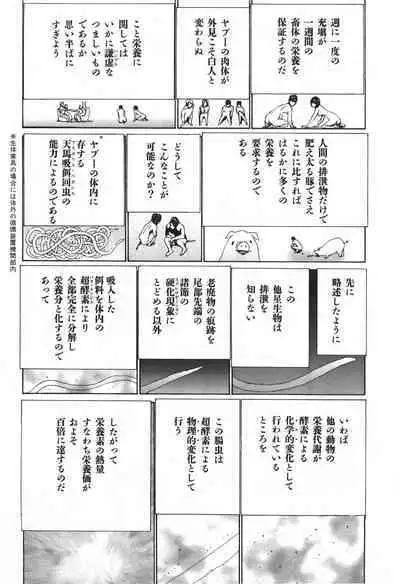 週に一度の
充塡が
一週間の
畜体の栄養を
保証するのだ
ヤプーの肉体が
外見こそ白人と
変わらぬ
こと栄養に
関しては
いかに謙虚な
つましいもの
か
思い半ばに
すぎよう
人間の排泄物だけで
肥え太る豚でさえ
これに比すれば
はるかに多くの
栄養を
要求するので
ある
どうして
こんなことが
可能なのか?
ヤプーの体内に
存する
天馬吸餌回虫の
能力によるのである
※生体家具の場合には体内の循環装置機関部内
先に
略述したように
この
他星生物は
排泄を
知らない
老廃物の痕跡を
尾部先端の
諸節の
硬化現象に
とどめる以外
吸入した
餌料を体内の
超酵素により
全部完全に分解し
栄養分と化するので
あって
いわば
他の動物の
栄養代謝が
酵素による
化学的変化として
行われている
ところを
この腸虫は
超酵素による
物理的変化として
行う
したがって
栄養素の熱量
すなわち栄養価が
およそ
百倍に達するのだ